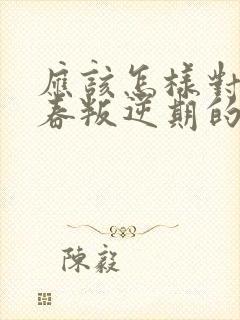 應該怎樣對
春叛逆期的
陳毅